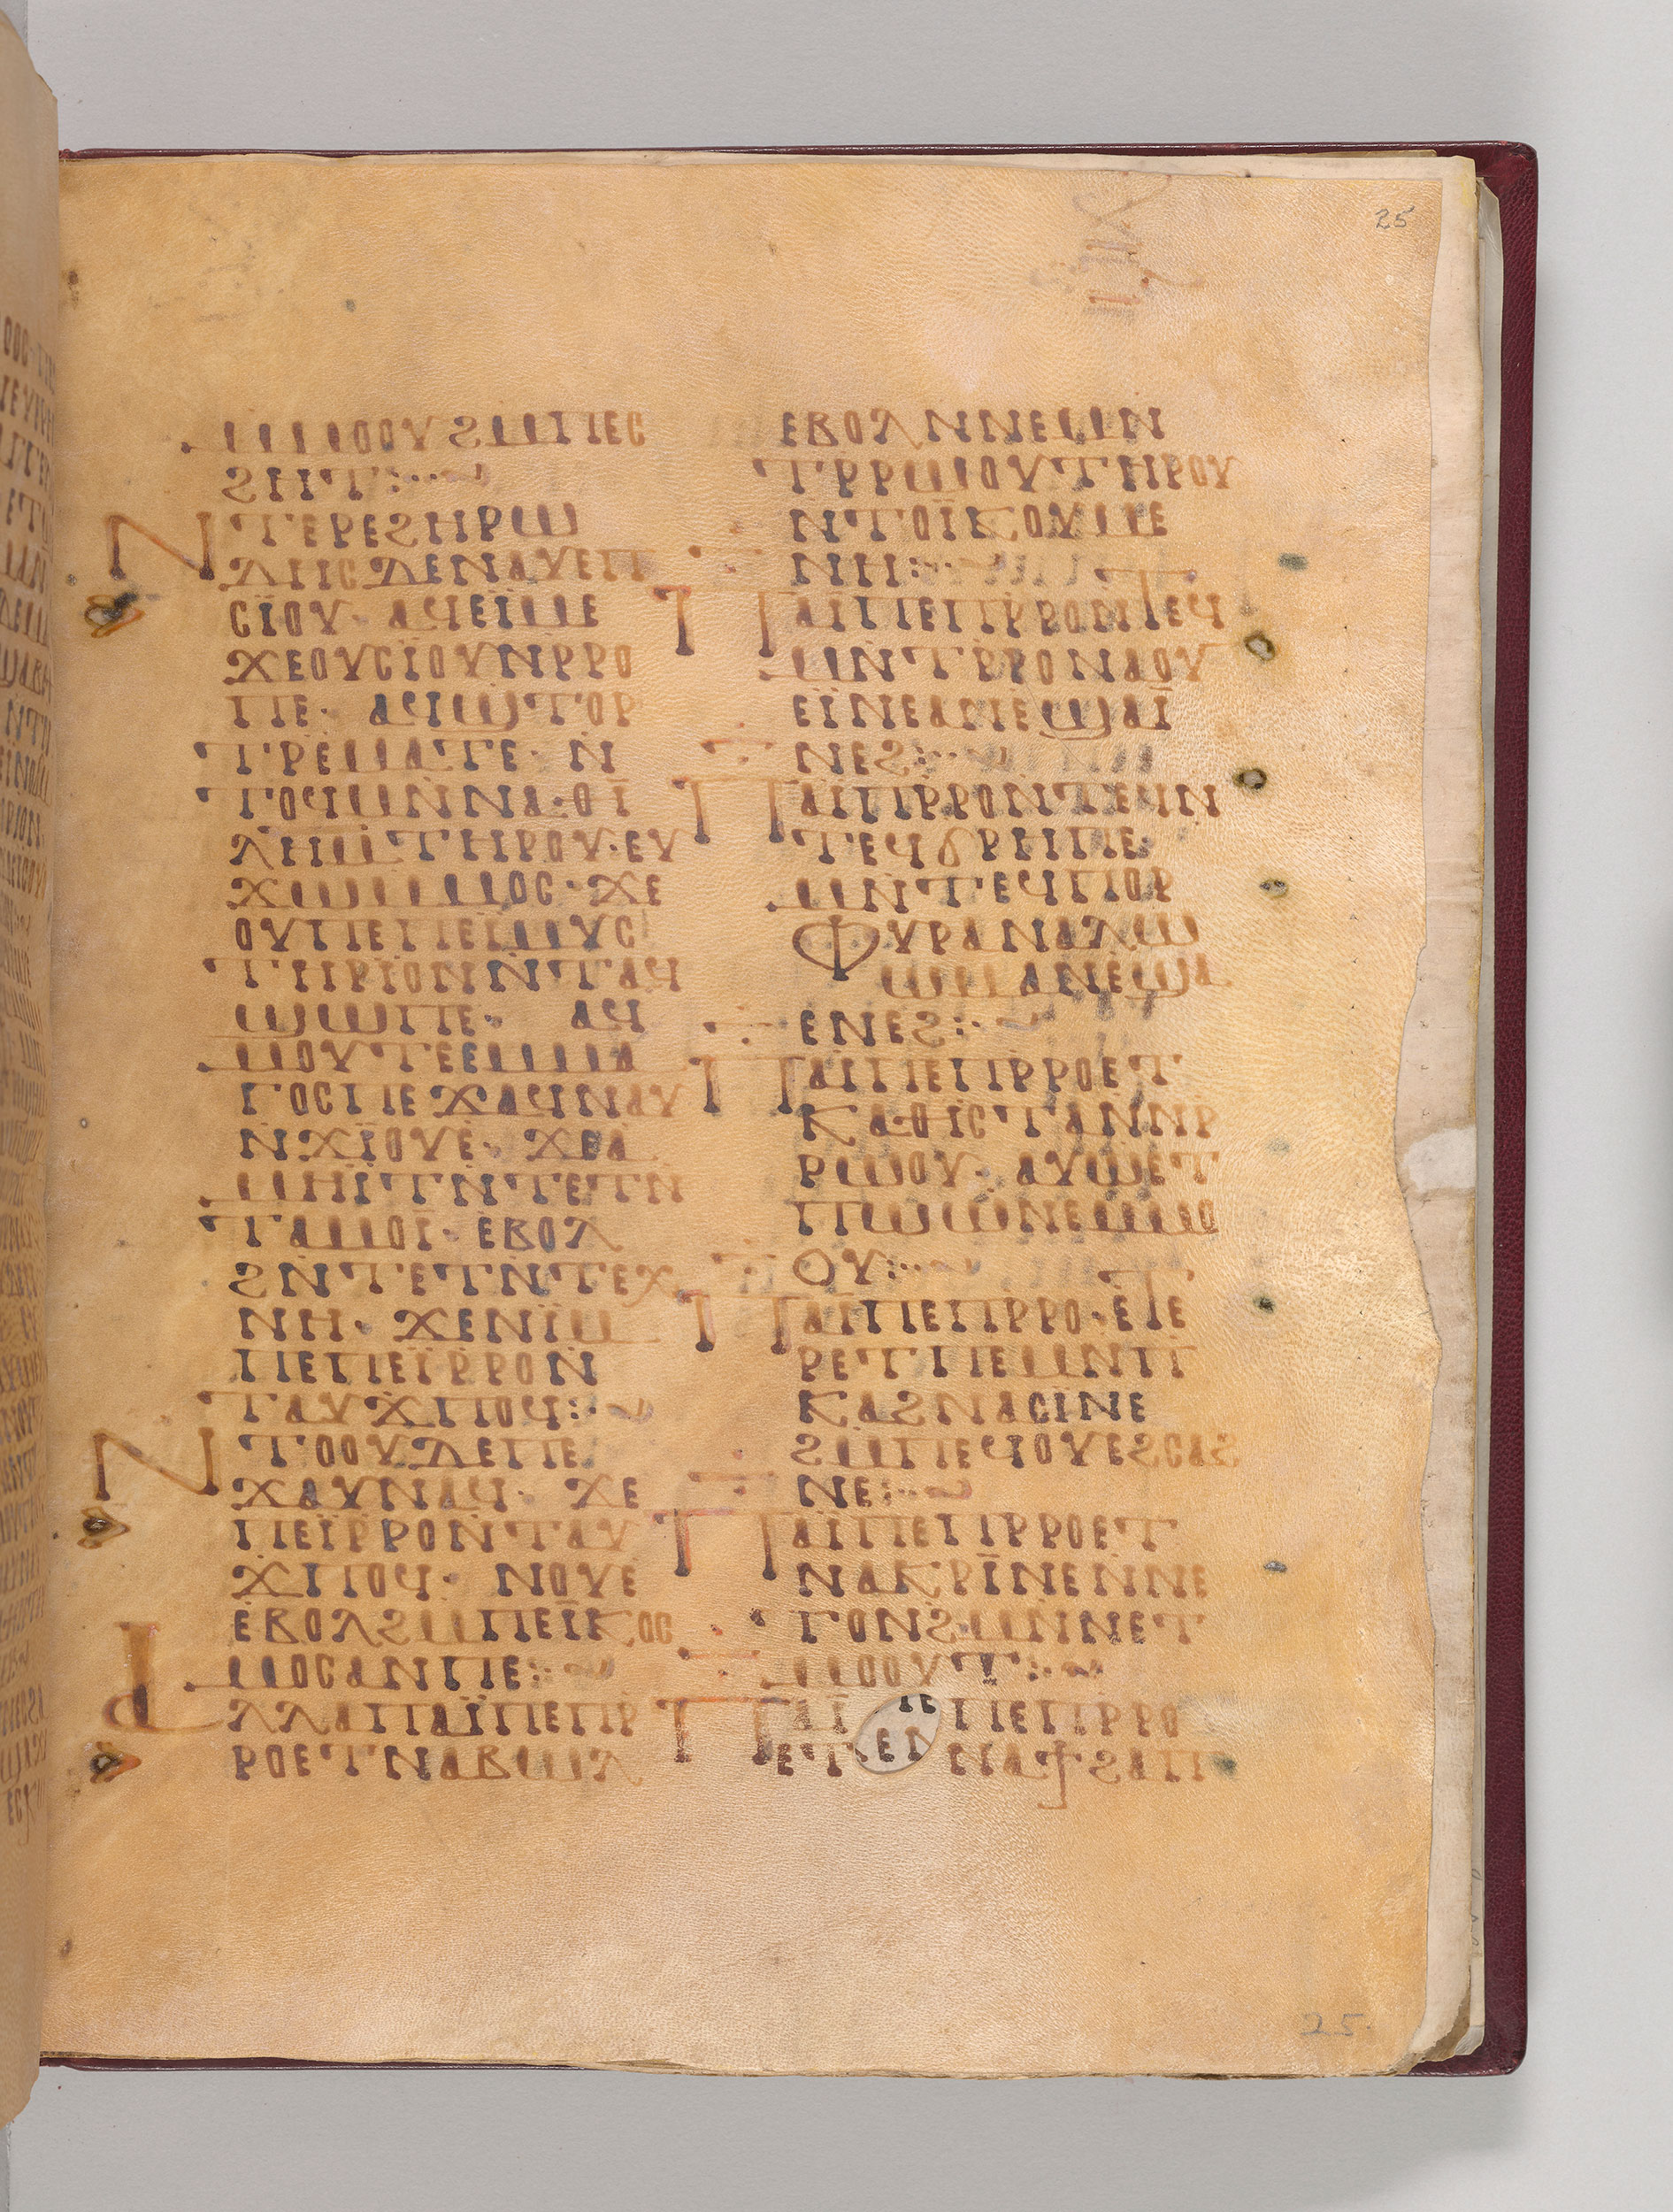 25
ⲙⲙⲟⲟⲩ ϩⲙⲡⲉⲥ
ϩⲏⲧ:
ⲛⲧⲉⲣⲉϩⲏⲣⲱ
ⲇⲏⲥ ⲇⲉ ⲛⲁⲩ ⲉⲡ
ⲥⲓⲟⲩ· ⲁϥⲉⲓⲙⲉ
ϫⲉⲟⲩⲥⲓⲟⲩ ⲛⲣⲣⲟ
ⲡⲉ· ⲁϥϣⲧⲟⲣ
ⲧⲣ ⲉⲙⲁⲧⲉ· ⲛ
ⲧⲟϥ ⲙⲛⲛⲁⲑⲓ
ⲗⲏⲙ ⲧⲏⲣⲟⲩ· ⲉⲩ
ϫⲱ ⲙⲙⲟⲥ· ϫⲉ
ⲟⲩ ⲡⲉ ⲡⲉⲓⲙⲩⲥ
ⲧⲏⲣⲓⲟⲛ ⲛⲧⲁϥ
ϣⲱⲡⲉ· ⲁϥ
ⲙⲟⲩⲧⲉ ⲉⲙⲙⲁ
ⲅⲟⲥ ⲡⲉϫⲁϥ ⲛⲁⲩ
ⲛϫⲓⲟⲩⲉ· ϫⲉⲁ
ⲙⲏⲓⲧⲛ ⲛⲧⲉⲧⲛ
ⲧⲁⲙⲟⲓ· ⲉⲃⲟⲗ
ϩⲛⲧⲉⲧⲛⲧⲉⲭ
ⲛⲏ· ϫⲉⲛⲓⲙ
ⲡⲉ ⲡⲉⲓⲣⲣⲟ ⲛ
ⲧⲁⲩϫⲡⲟϥ:
ⲛⲧⲟⲟⲩ ⲇⲉ ⲡⲉ
ϫⲁⲩ ⲛⲁϥ· ϫⲉ
ⲡⲉⲓⲣⲣⲟ ⲛⲧⲁⲩ
ϫⲡⲟϥ· ⲛⲟⲩⲉ
ⲉⲃⲟⲗ ϩⲙⲡⲉⲓⲕⲟⲥ
ⲙⲟⲥ ⲁⲛ ⲡⲉ:
ⲁⲗⲗⲁ ⲡⲁⲓ ⲡⲉ ⲡⲣ
ⲣⲟ ⲉⲧⲛⲁⲃⲱⲗ
ⲉⲃⲟⲗ ⲛⲛⲉⲙⲛ
ⲧⲣⲣⲱⲟⲩ ⲧⲏⲣⲟⲩ
ⲛⲧⲟⲓⲕⲟⲩⲙⲉ
ⲛⲏ:
ⲡⲁⲓ ⲡⲉ ⲡⲣⲣⲟ ⲡⲉϥ
ⲙⲛⲧⲣⲣⲟ ⲛⲁⲟⲩ
ⲉⲓⲛⲉ ⲁⲛ ⲉϣⲁⲓ
ⲛⲉϩ:
ⲡⲁⲓ ⲡⲣⲣⲟ ⲛⲧⲉⲓⲛ
ⲧⲉϥϭⲣⲏⲡⲉ·
ⲙⲛⲧⲉϥⲡⲟⲣ
ⲫⲩⲣⲁ ⲛⲁⲗⲱ
ⲱⲙ ⲁⲛ ⲉϣⲁ
ⲉⲛⲉϩ:
ⲡⲁⲓ ⲡⲉ ⲡⲣⲣⲟ ⲉⲧ
ⲕⲁⲑⲓⲥⲧⲁ ⲛⲛⲣ
ⲣⲱⲟⲩ· ⲁⲩⲱ ⲉⲧ
ⲡⲱⲱⲛⲉ ⲙⲙⲟ
ⲟⲩ:
ⲡⲁⲓ ⲡⲉ ⲡⲣⲣⲟ· ⲉⲧⲉ
ⲣⲉⲧⲡⲉ ⲙⲛⲡ
ⲕⲁϩ ⲛⲁⲥⲓⲛⲉ
ϩⲙⲡⲉϥⲟⲩⲉϩⲥⲁϩ
ⲛⲉ:
ⲡⲁⲓ ⲡⲉ ⲡⲣⲣⲟ ⲉⲧ
ⲛⲁⲕⲣⲓⲛⲉ ⲛⲛⲉ
ⲧⲟⲛϩ ⲙⲛⲛⲉⲧ
ⲙⲟⲟⲩⲧ:
ⲡⲁⲓ ⲡⲉ ⲡⲣⲣⲟ
ⲉⲧ ⲛⲁϯϩⲁⲡ
25